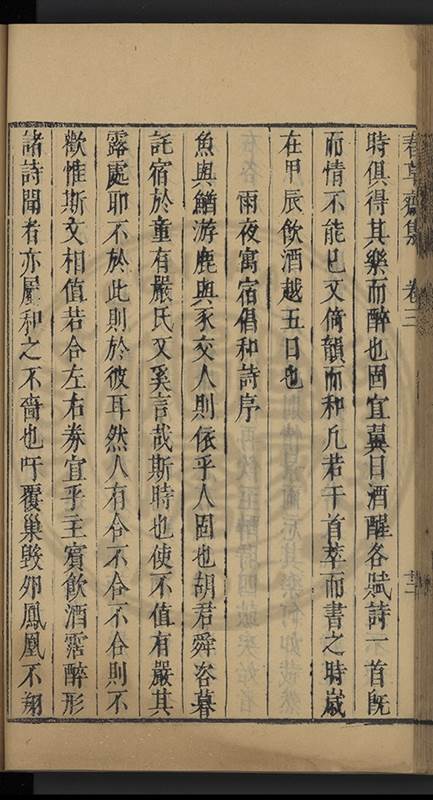 春草齋集 卷三
時俱得其樂而醉也固宜翼日酒醒各賦詩一首既
而情不能已又倚韻而和凡若干首萃而書之時歲
在甲辰飲酒越五日也
雨夜寓宿倡和詩序
魚與鰌游鹿與豕交人則依乎人固也胡君舜咨暮
託宿於童有嚴氏又奚言哉斯時也使不值有嚴其
露處耶不於此則於彼耳然人有合不合不合則不
歡惟斯文相值若合左右券宜乎主賓飲酒霑醉形
諸詩聞者亦屬和之不啻也吁覆巢毀夘鳳凰不翔